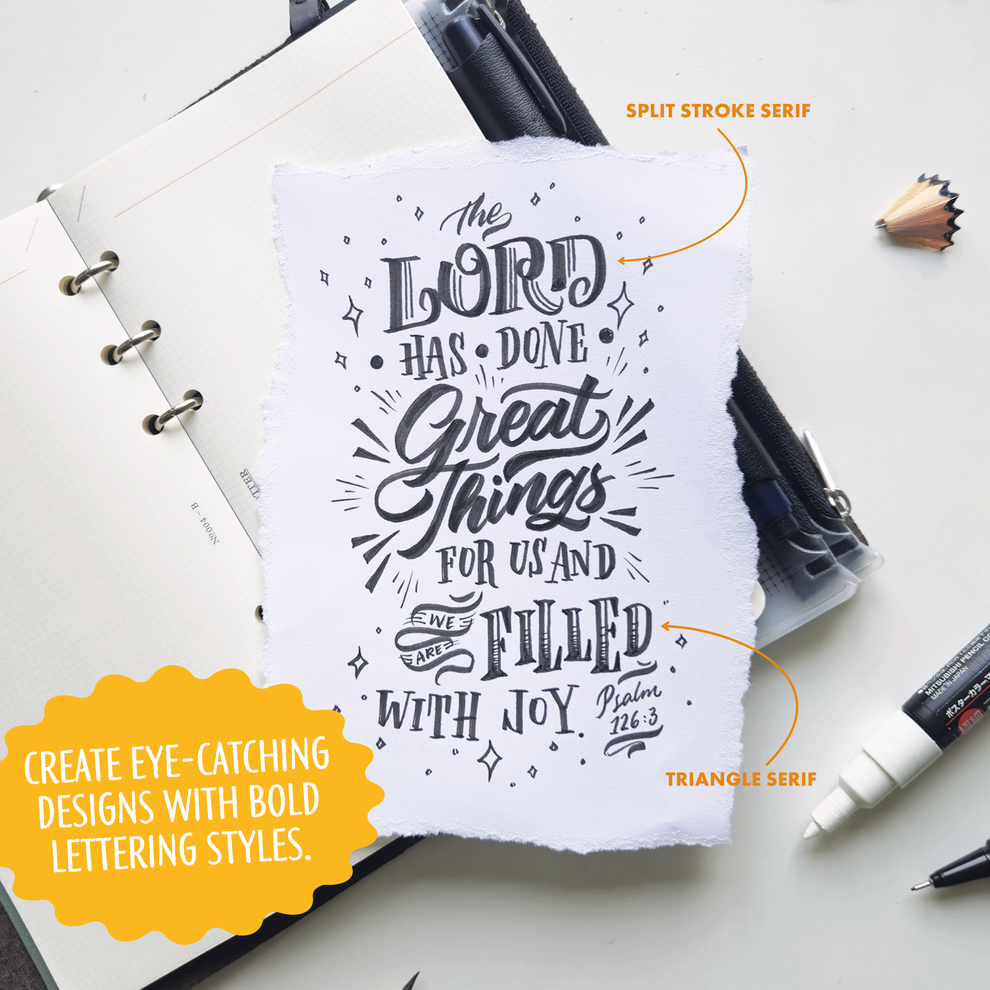 SPLIT STROKE SERIF
The
LORD
HAS • DONE •
Great
Things
FOR US AND
WE
ARE
FILLED
WITH JOY.
Psalm
126:3
TRIANGLE SERIF
CREATE EYE-CATCHING
DESIGNS WITH BOLD
LETTERING STYLES.
Nº004 – B
MITSUBISHI PENCIL CO
MADE IN JAPAN
ポスターカラーマ